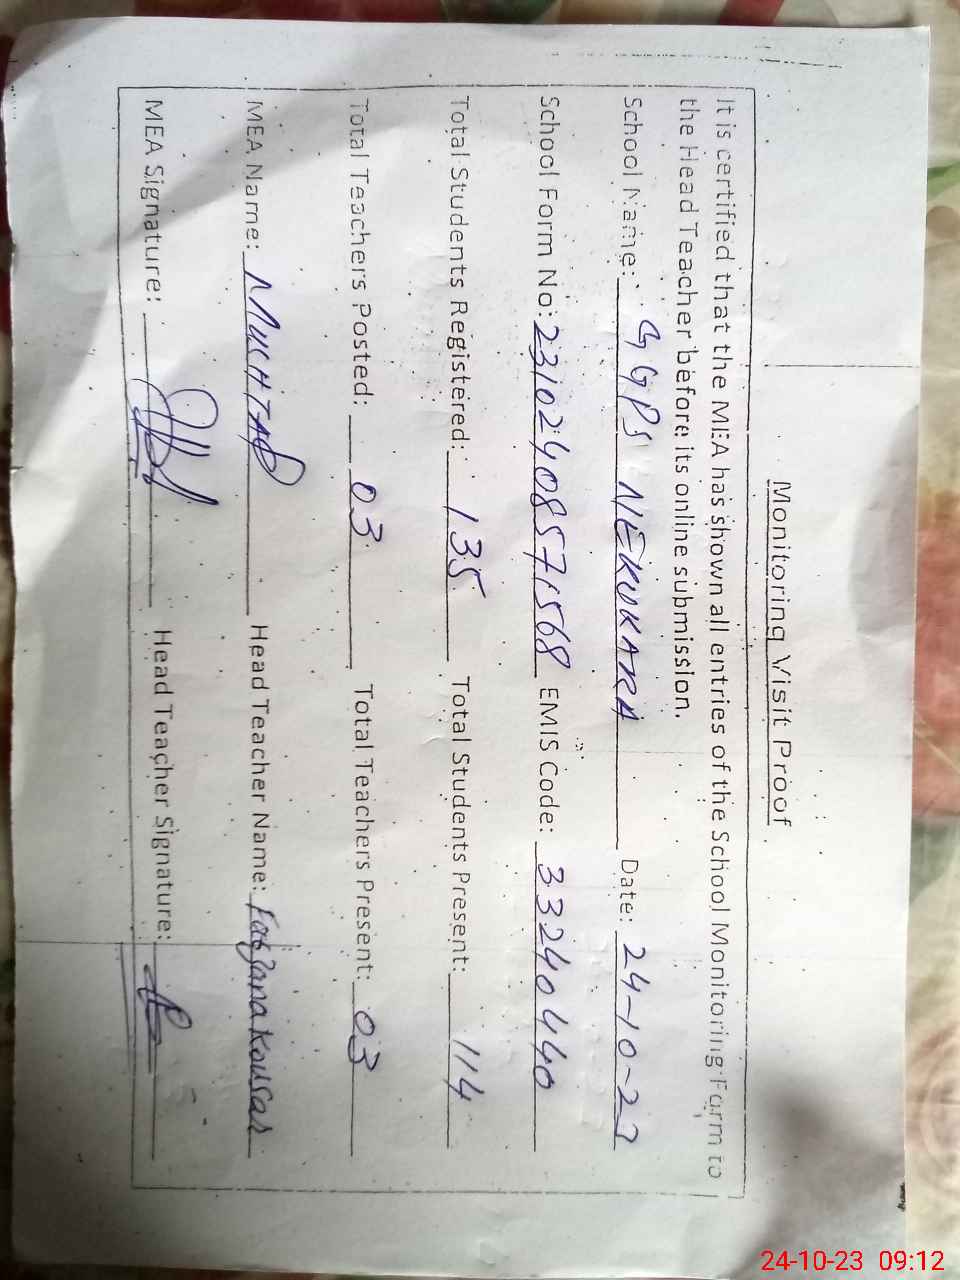 Monitoring Visit Proof
It is certified that the MEA has shown all entries of the School Monitoring Form to
the Head Teacher before its online submission.
School Name: GGPS NEKUKARA Date: 24-10-23
School Form No: 23102408571568 EMIS Code: 33240440
Total Students Registered: 135 Total Students Present: 114
Total Teachers Posted: 03 Total Teachers Present: 03
MEA Name: MUKHTAR Head Teacher Name: Farzana Kousar
MEA Signature: Head Teacher Signature:
24-10-23 09:12